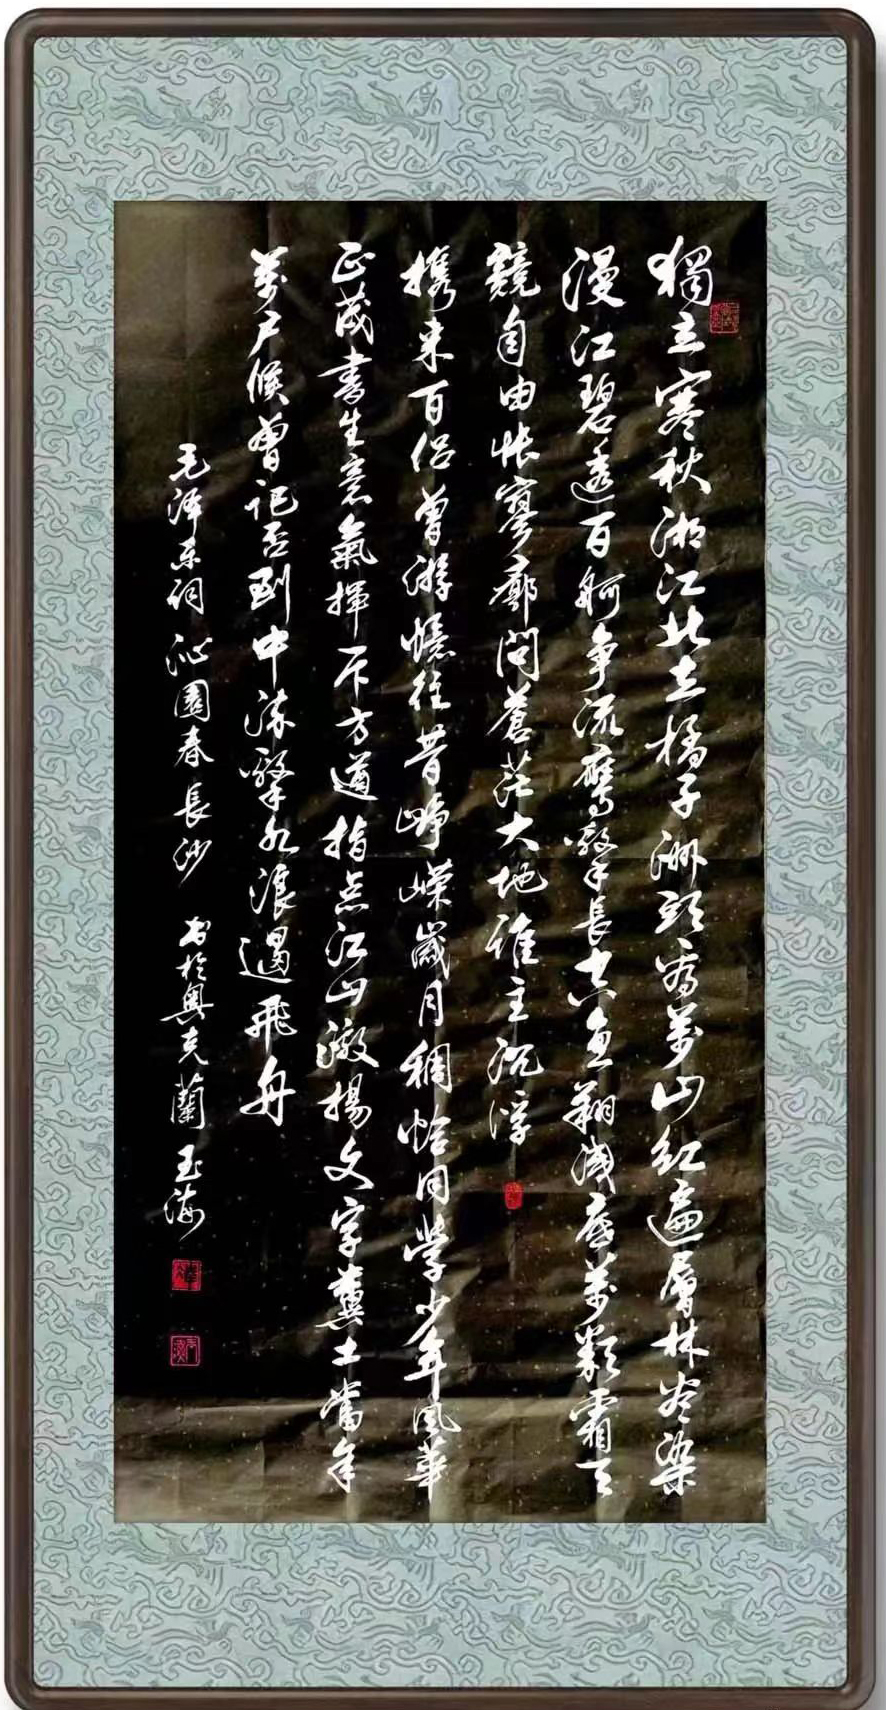 獨立寒秋湘江北去橘子洲頭看萬山紅遍層林盡染
漫江碧透百舸争流鹰擊長空魚翔淺底萬類霜天
競自由悵寥廓問蒼茫大地誰主沉浮
携来百侣曾游憶往昔崢嶸歲月稠恰同學少年風華
正茂書生意氣揮斥方遒指点江山激揚文字糞土當年
萬户侯曾记否到中流擊水浪遏飛舟
毛泽东词沁園春長沙 书於奥克蘭 玉海